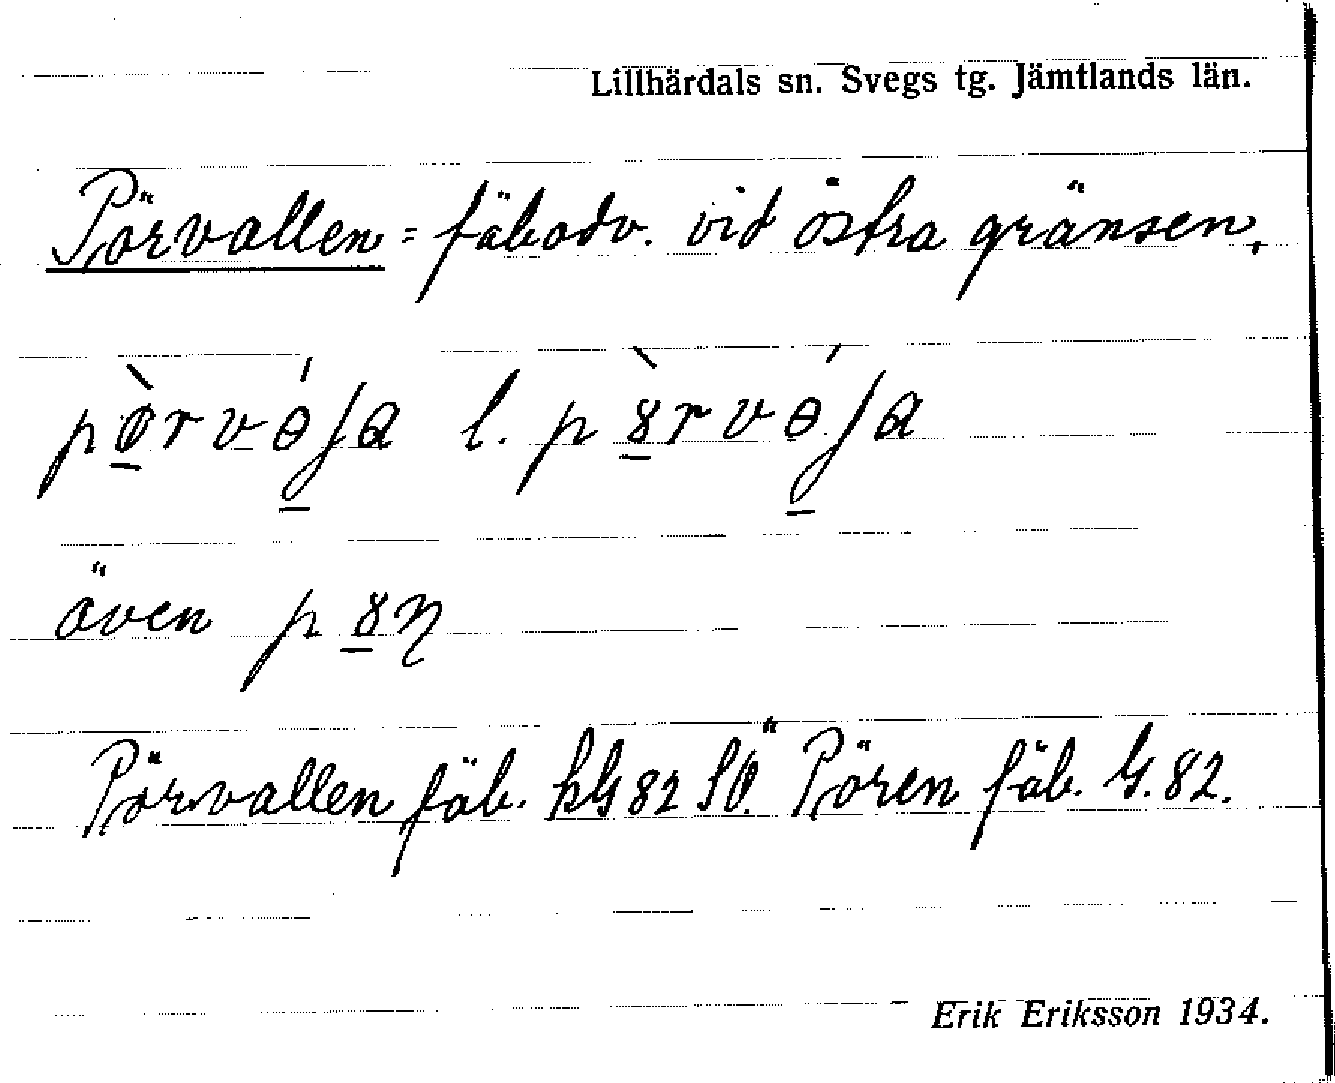 Lillhärdals sn. Svegs tg. Jämtlands län.
Pörvallen = fäbodv. vid östra gränsen.
l.
även
Pörvallen fäb. hG 82 SÖ. Pören fäb. G. 82.
Erik Eriksson 1934.